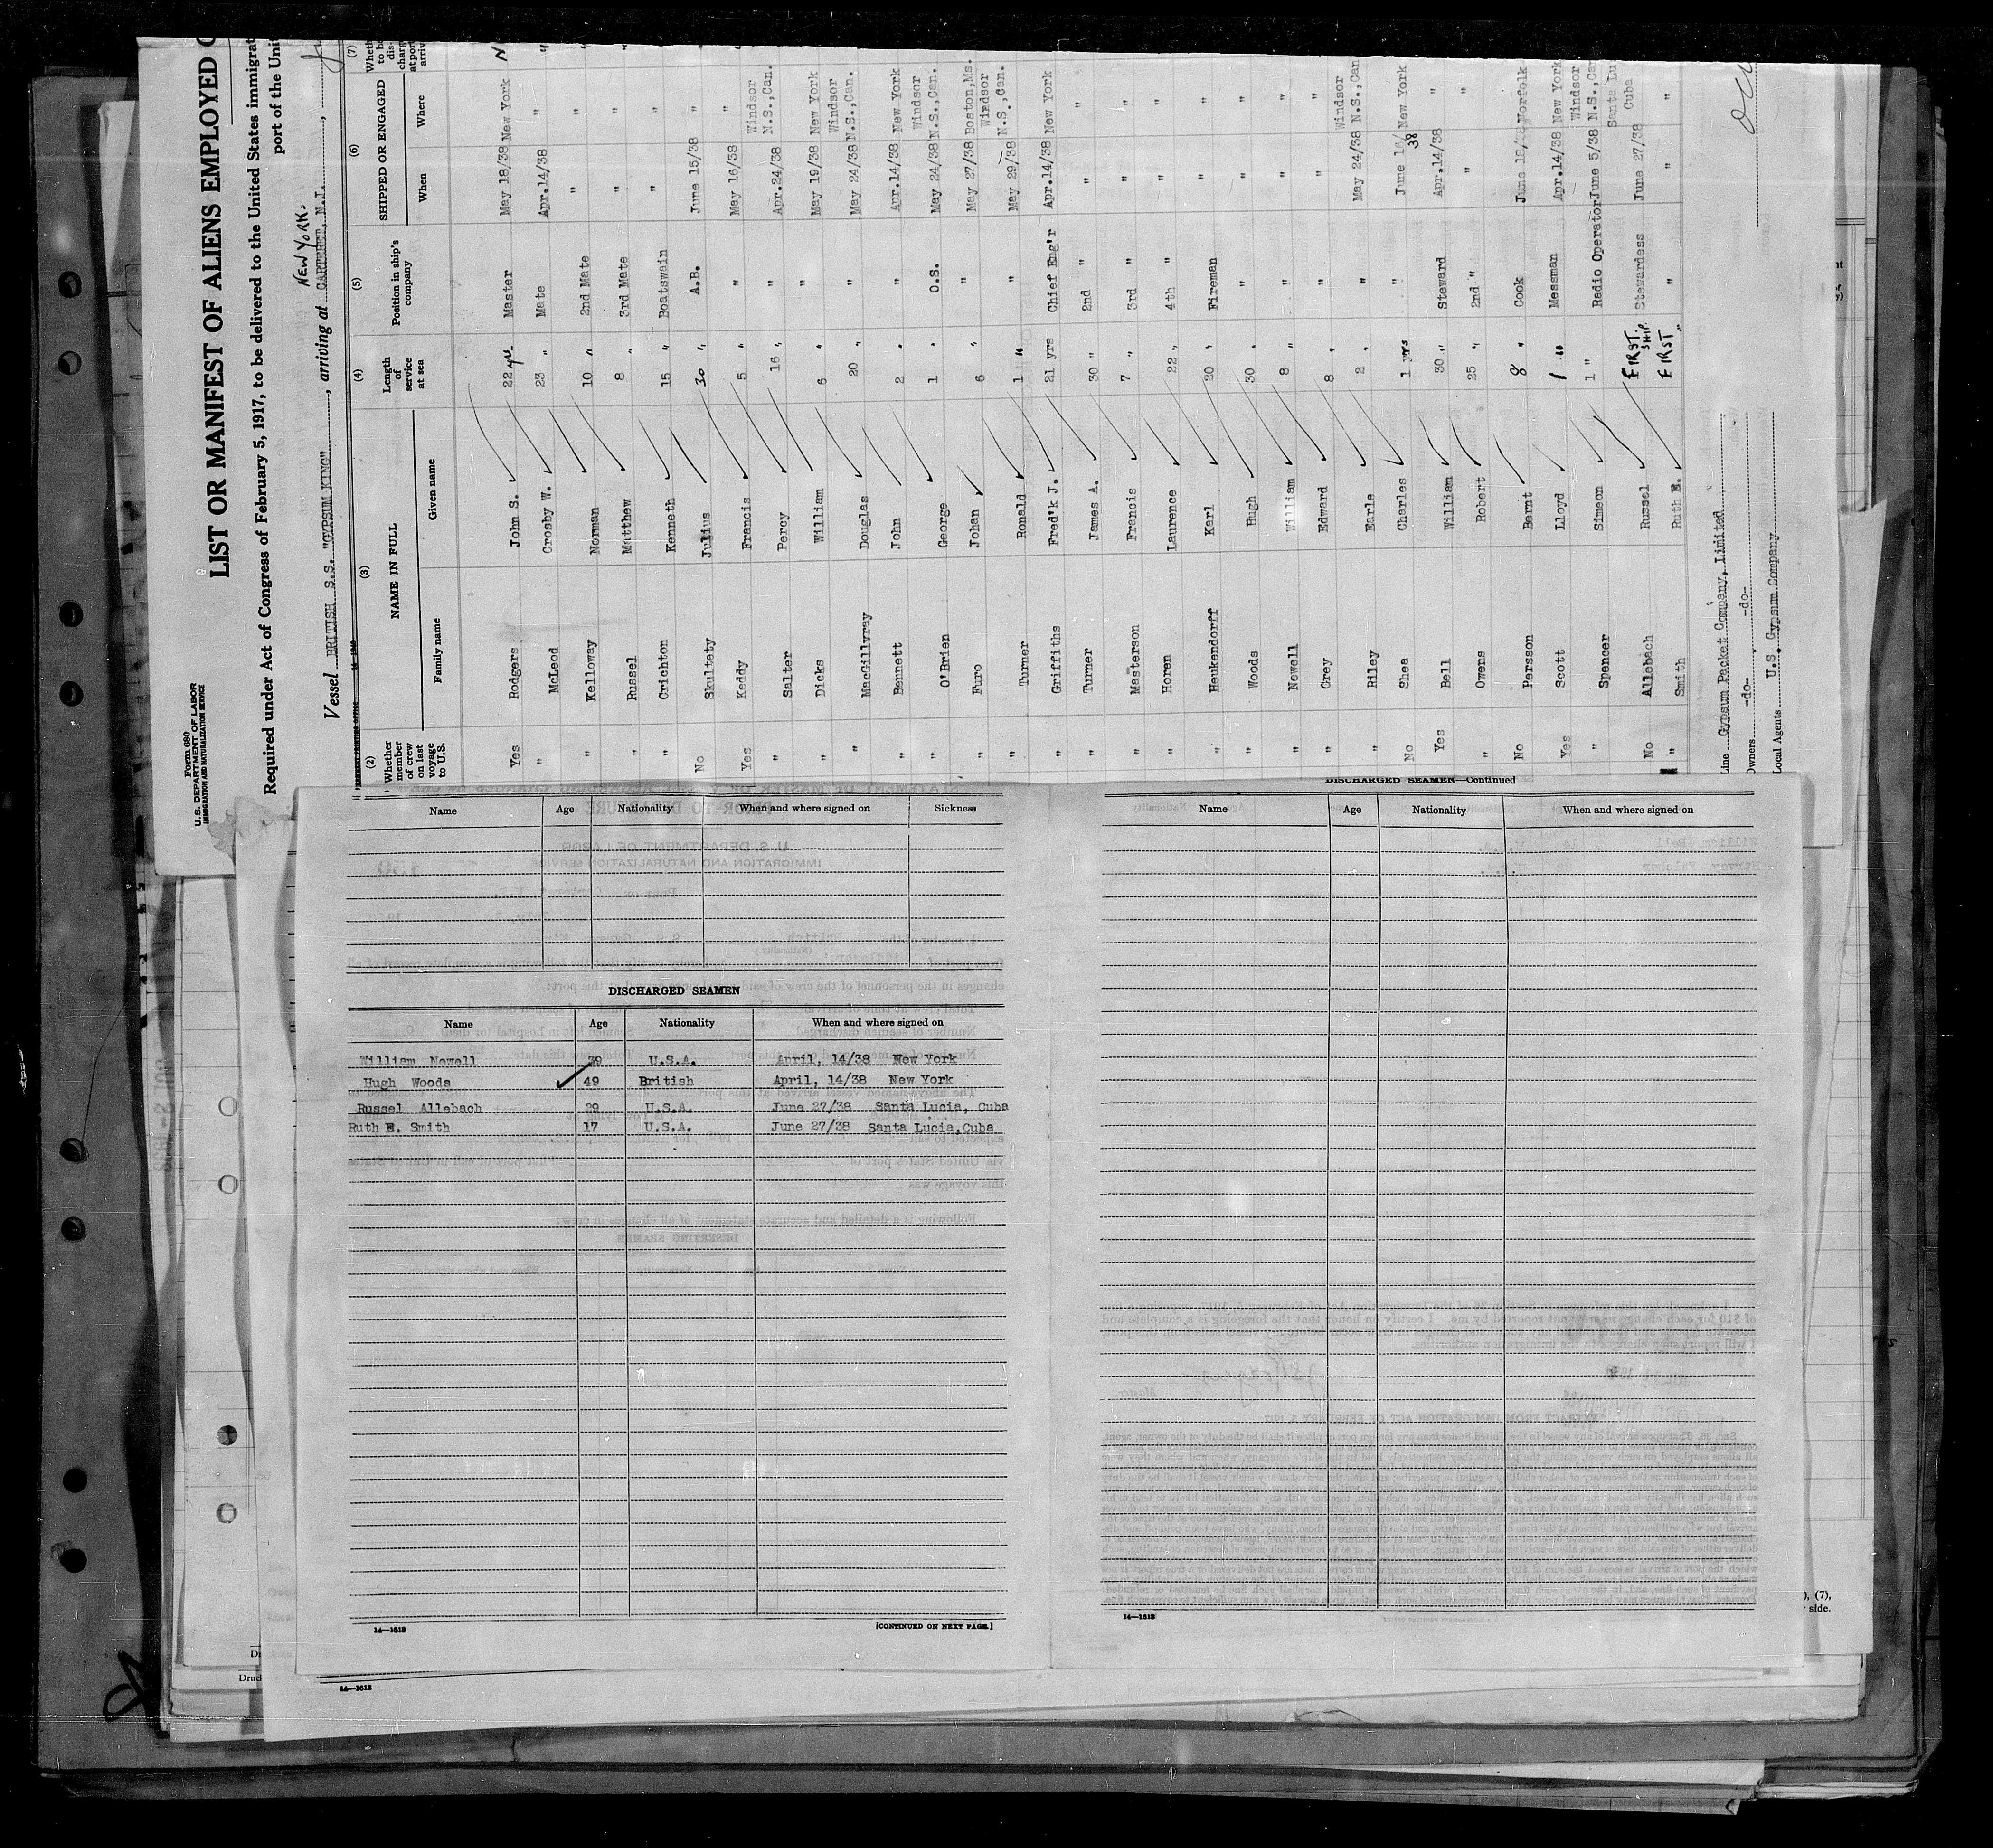 Form 680
U. S. DEPARTMENT OF LABOR
IMMIGRATION AND NATURALIZATION SERVICE
LIST OR MANIFEST OF ALIENS EMPLOYED
Required under Act of Congress of February 5, 1917, to be delivered to the United States immigrat
port of the Unit
NEW YORK.
Vessel BRITISH S.S. "GYPSUM KING", arriving at CARTERET, N.J.,
(2) (3) (4) (5) (6) (7)
Whether member of crew on last voyage to U.S. NAME IN FULL Length of service at sea Position in ship's company SHIPPED OR ENGAGED Wheth to be dis- charg at port arriv
Family name Given name When Where
Yes Rodgers John S. 22 yrs Master May 18/38 New York N
" McLeod Crosby W. 23 " Mate Apr.14/38 " "
" Kelloway Norman 10 " 2nd Mate " " "
" Russel Matthew 8 " 3rd Mate " " "
" Crichton Kenneth 15 " Boatswain " " "
No Skultety Julius 30 " A.B. June 15/38 " "
Yes Keddy Francis 5 " " May 16/38 " "
" Salter Percy 16 " " Apr.24/38 Windsor N.S.,Can.
" Dicks William 6 " " May 19/38 New York
" MacGillvray Douglas 20 " " May 24/38 Windsor N.S.,Can.
" Bennett John 2 " " Apr.14/38 New York
" O'Brien George 1 " O.S. May 24/38 Windsor N.S.,Can.
" Furo Johan 6 " " May 27/38 Boston,Ms.
" Turner Ronald 1 " " May 29/38 Windsor N.S.,Can.
" Griffiths Fred'k J. 21 yrs Chief Eng'r Apr.14/38 New York
" Turner James A. 30 " 2nd " " "
" Masterson Francis 7 " 3rd " " "
" Horen Laurence 22 " 4th " " "
" Heukendorff Karl 20 " Fireman " "
" Woods Hugh 30 " " " "
" Newell William 8 " " " "
" Grey Edward 8 " " " "
" Riley Earle 2 " " May 24/38 Windsor N.S.,Can
No Shea Charles 1 yrs " June 38 New York
Yes Bell William 30 " Steward Apr.14/38 "
" Owens Robert 25 " 2nd " " "
No Persson Bernt 8 " Cook June Norfolk
Yes Scott Lloyd 1 " Messman Apr.14/38 New York
" Spencer Simeon 1 " Radio Operator June 5/38 Windsor N.S.,Ca
No Allebach Russel FIRST SHIP. Stewardess June 27/38 Santa Lu Cuba
" Smith Ruth E. FIRST " " " "
Line Gypsum Packet Company, Limited
Owners -do- -do-
Local Agents U.S. Gypsum Company
Name Age Nationality When and where signed on Sickness
DISCHARGED SEAMEN
Name Age Nationality When and where signed on
William Newell 39 U.S.A. April, 14/38 New York
Hugh Woods 49 British April, 14/38 New York
Russel Allebach 29 U.S.A. June 27/38 Santa Lucia, Cuba
Ruth E. Smith 17 U.S.A. June 27/38 Santa Lucia,Cuba
14—1613 [CONTINUED ON NEXT PAGE.]
DISCHARGED SEAMEN—Continued
Name Age Nationality When and where signed on
14—1613
14—1613
), (7),
side.